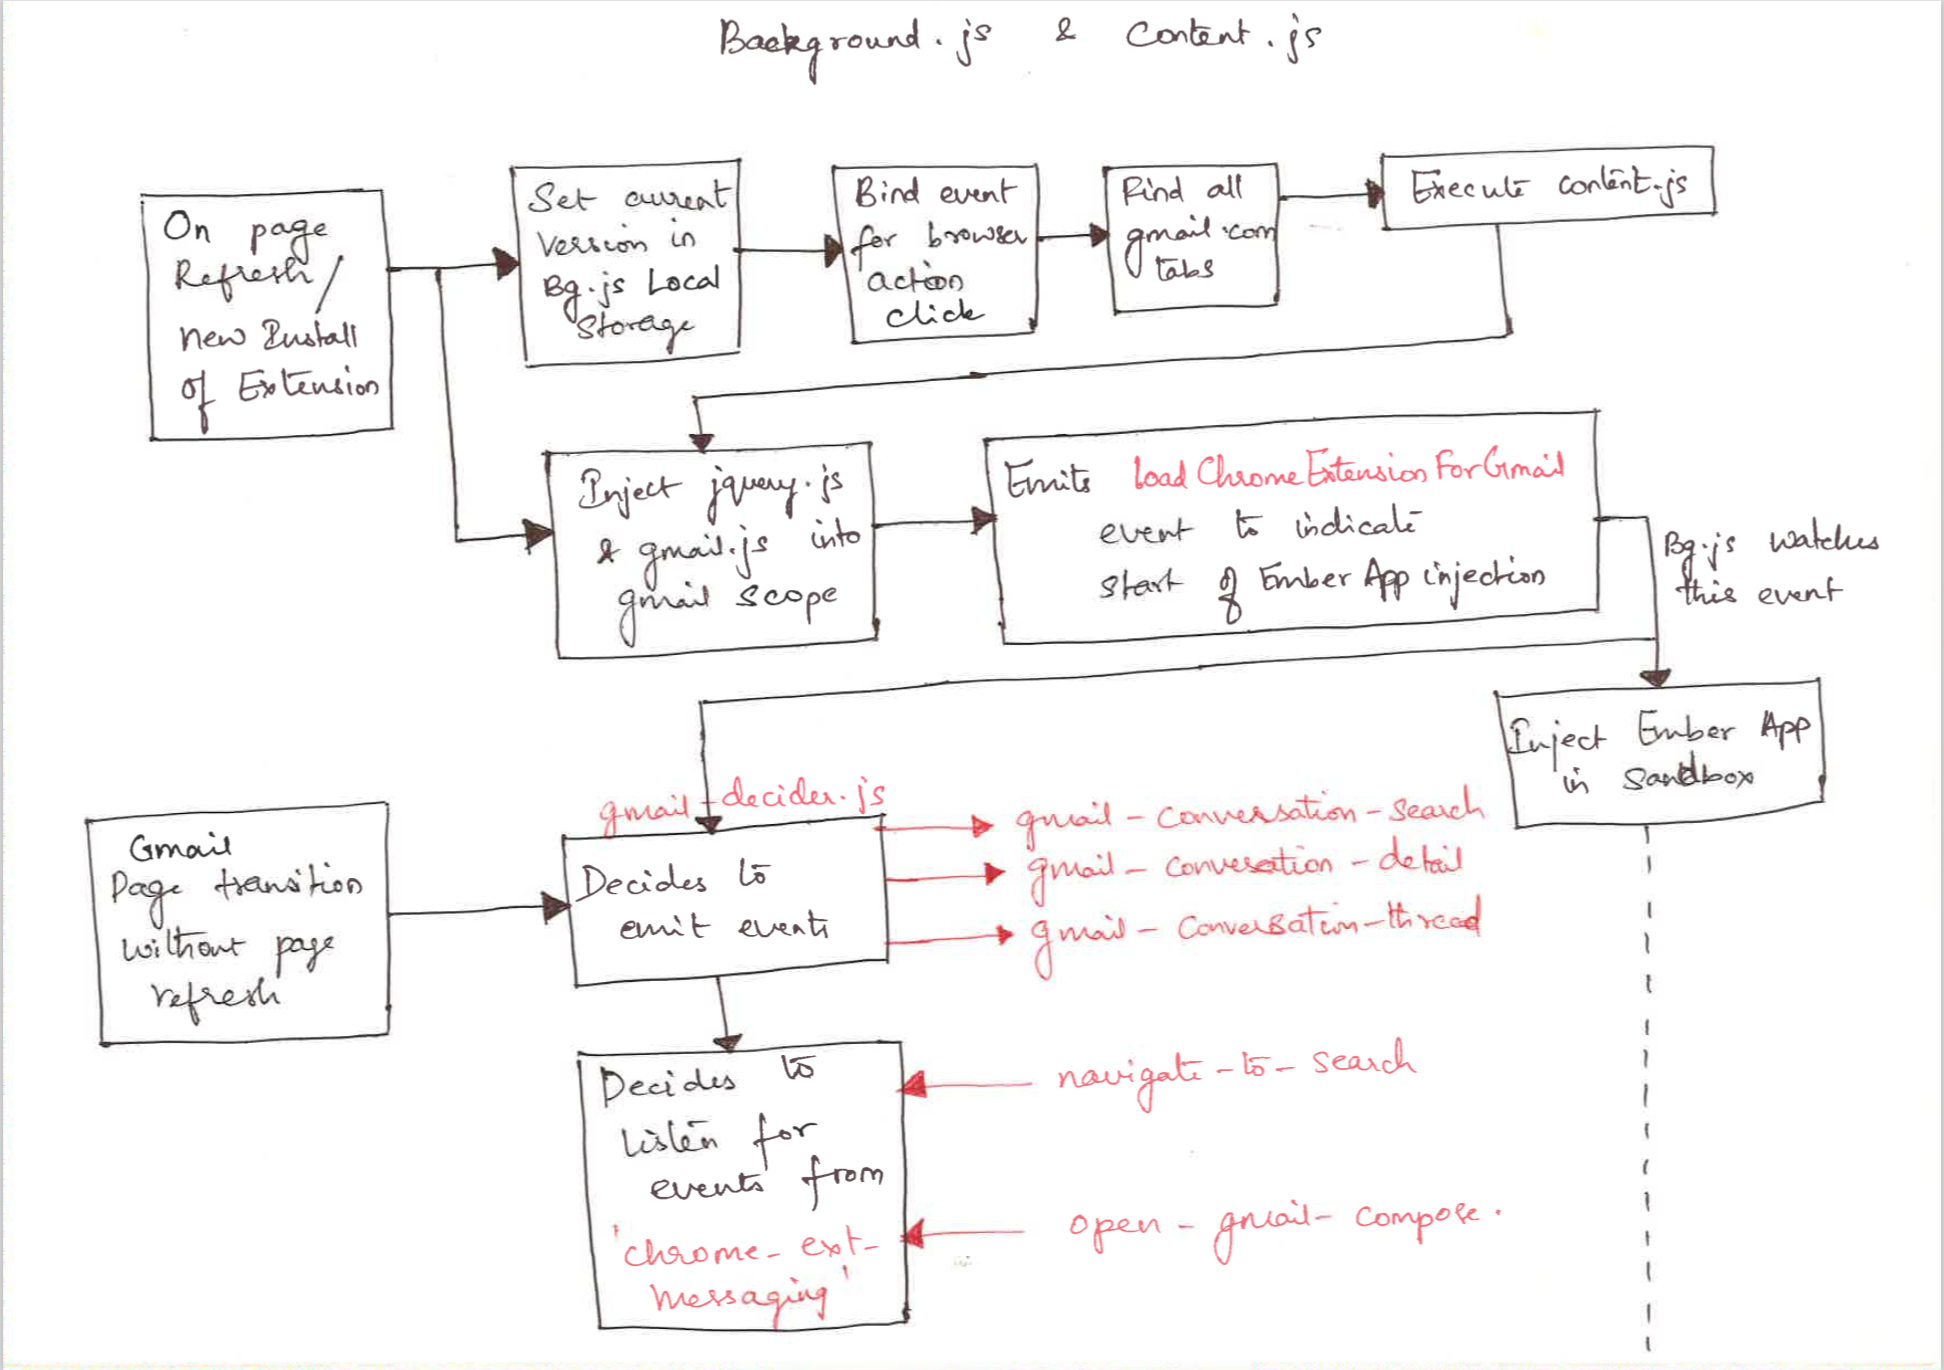 Background.js & Content.js
On page
Refresh/
new Install
of Extension
Set current
Version in
Bg.js Local
Storage
Bind event
for browser
action
click
Find all
gmail.com
tabs
Execute content.js
Inject jquery.js
& gmail.js into
gmail scope
Emits load Chrome Extension For Gmail
event to indicate
start of Ember App injection
Bg.js watches
this event
Inject Ember App
in Sandbox
gmail-decider.js
Gmail
Page transition
without page
refresh
Decides to
emit events
gmail-conversation-search
gmail-conversation-detail
gmail-conversation-thread
Decides to
listen for
events from
'chrome-ext-
messaging'
navigate-to-search
open-gmail-compose.